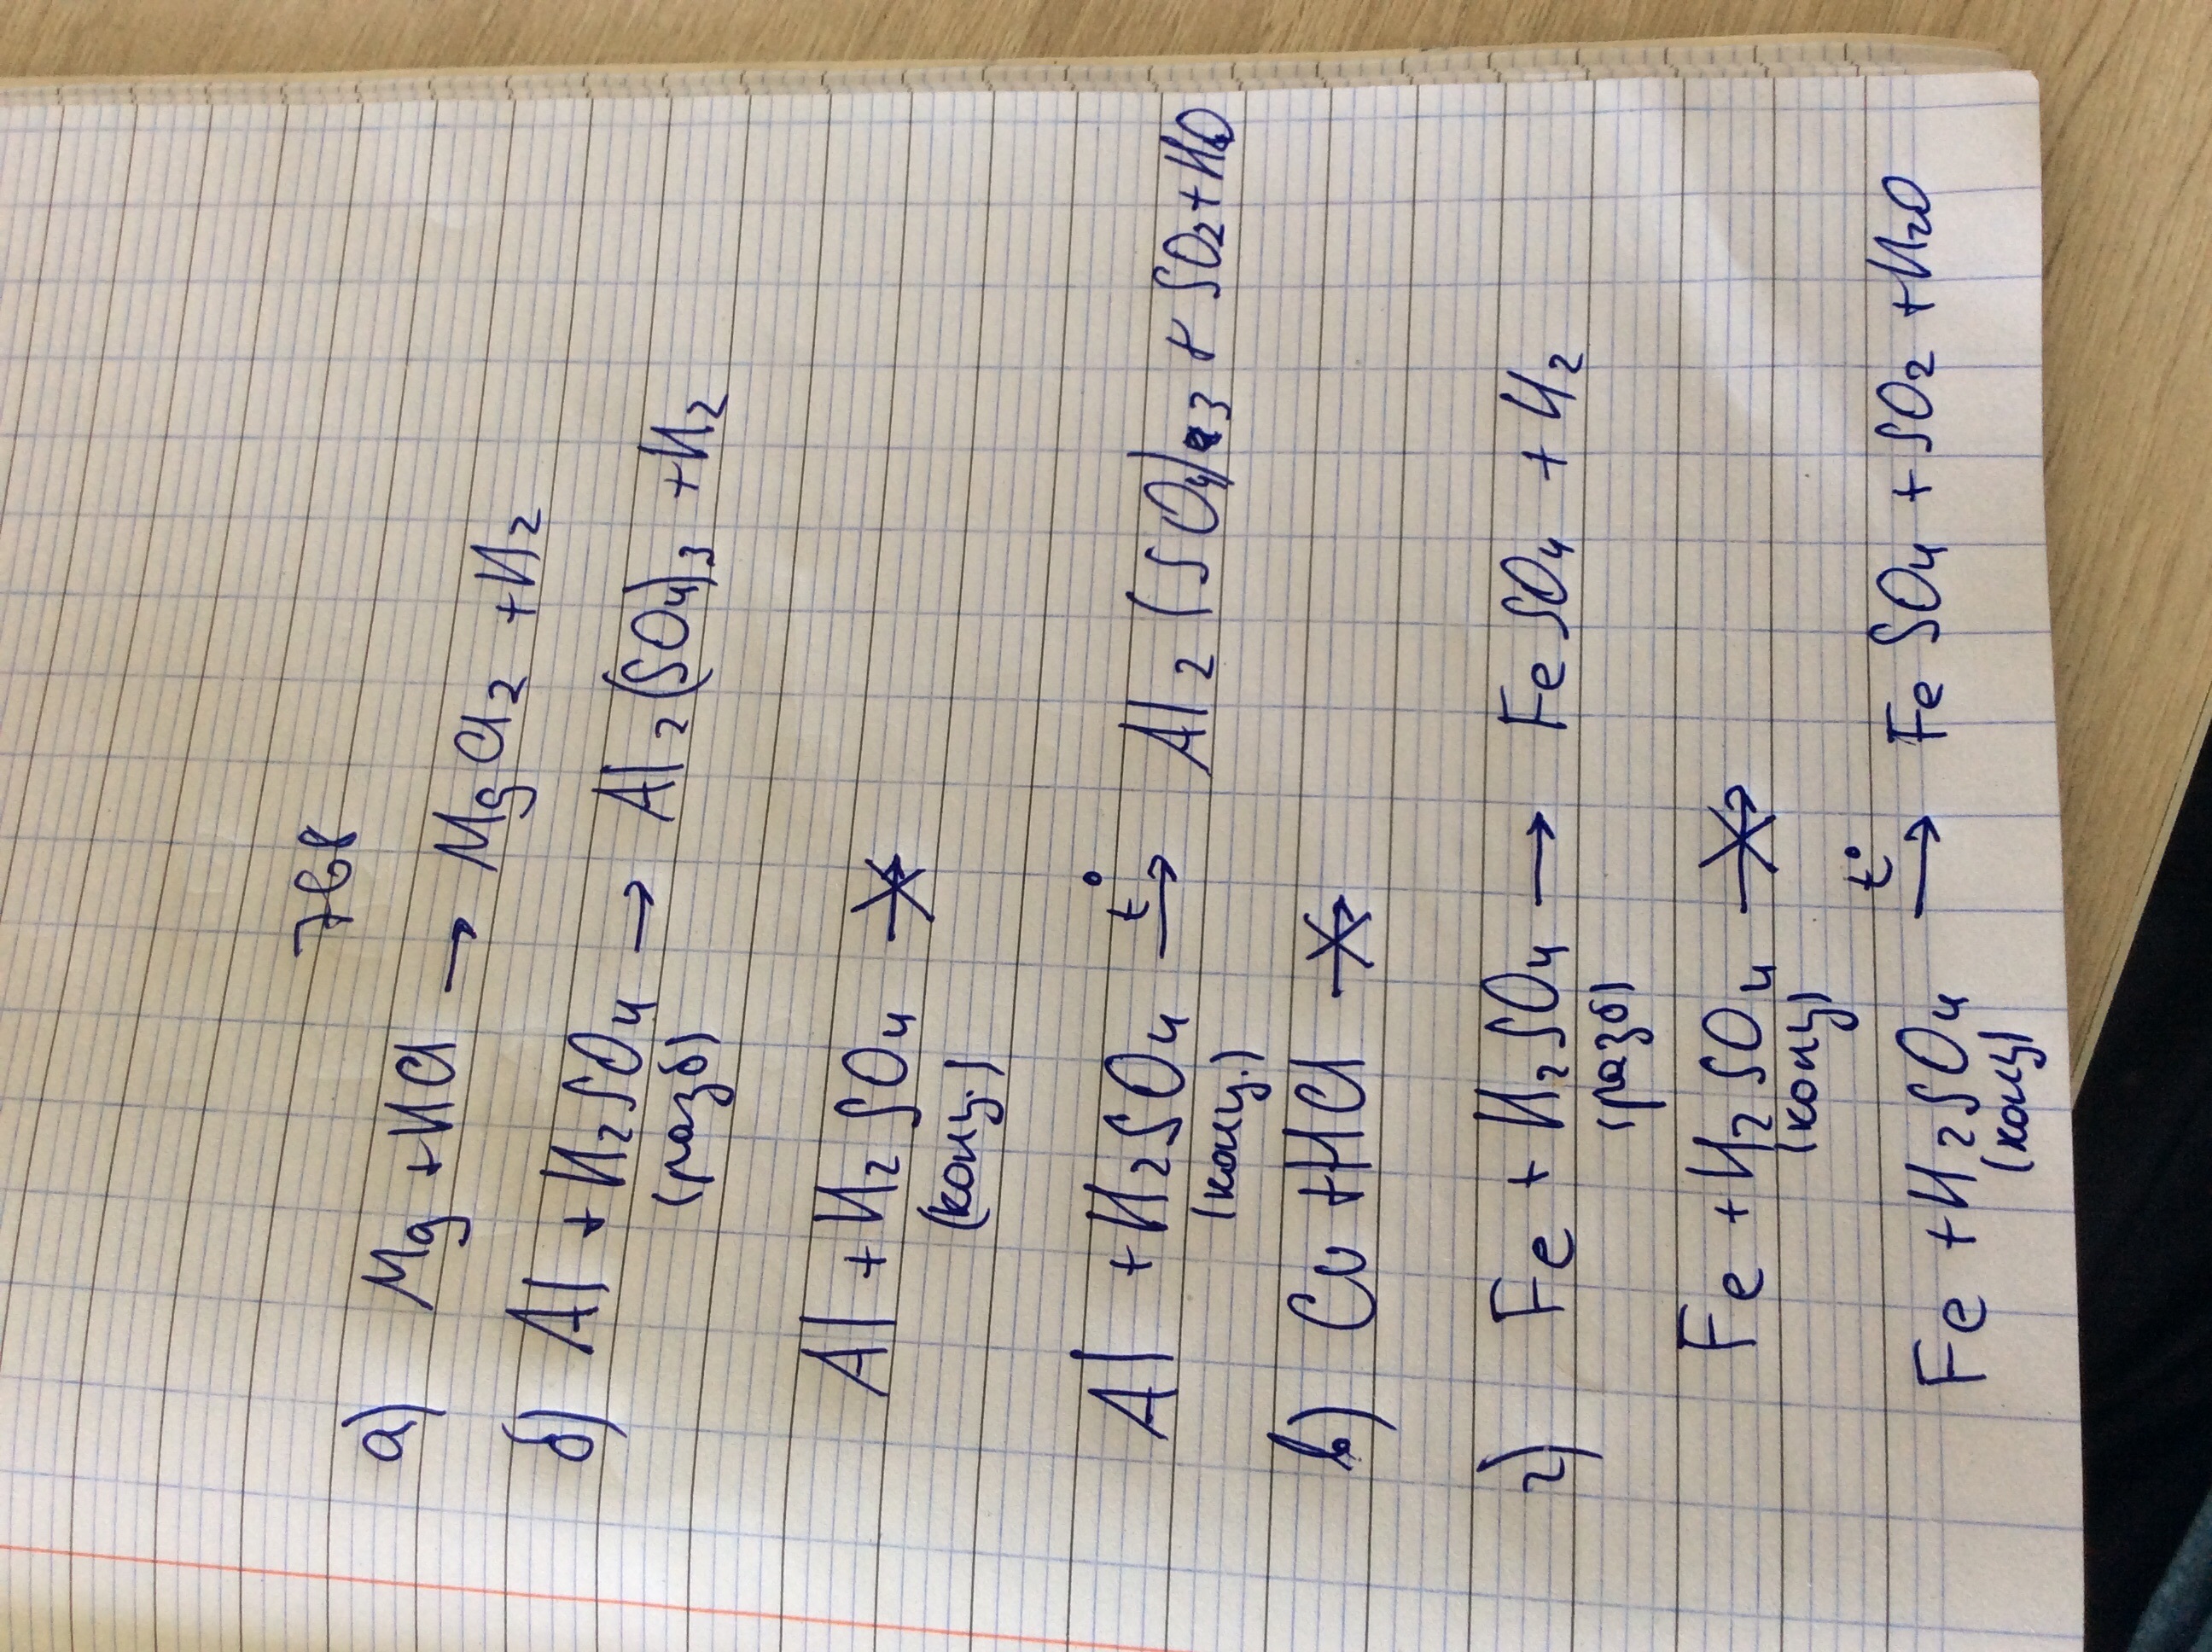 768
а) Mg + HCl → MgCl₂ + H₂
б) Al + H₂SO₄ → Al₂(SO₄)₃ + H₂
(разб)
Al + H₂SO₄ ↛
(конц.)
Al + H₂SO₄ t° → Al₂(SO₄)₃ + SO₂ + H₂O
(конц.)
в) Cu + HCl ↛
г) Fe + H₂SO₄ → FeSO₄ + H₂
(разб)
Fe + H₂SO₄ ↛
(конц)
Fe + H₂SO₄ t° → FeSO₄ + SO₂ + H₂O
(конц)